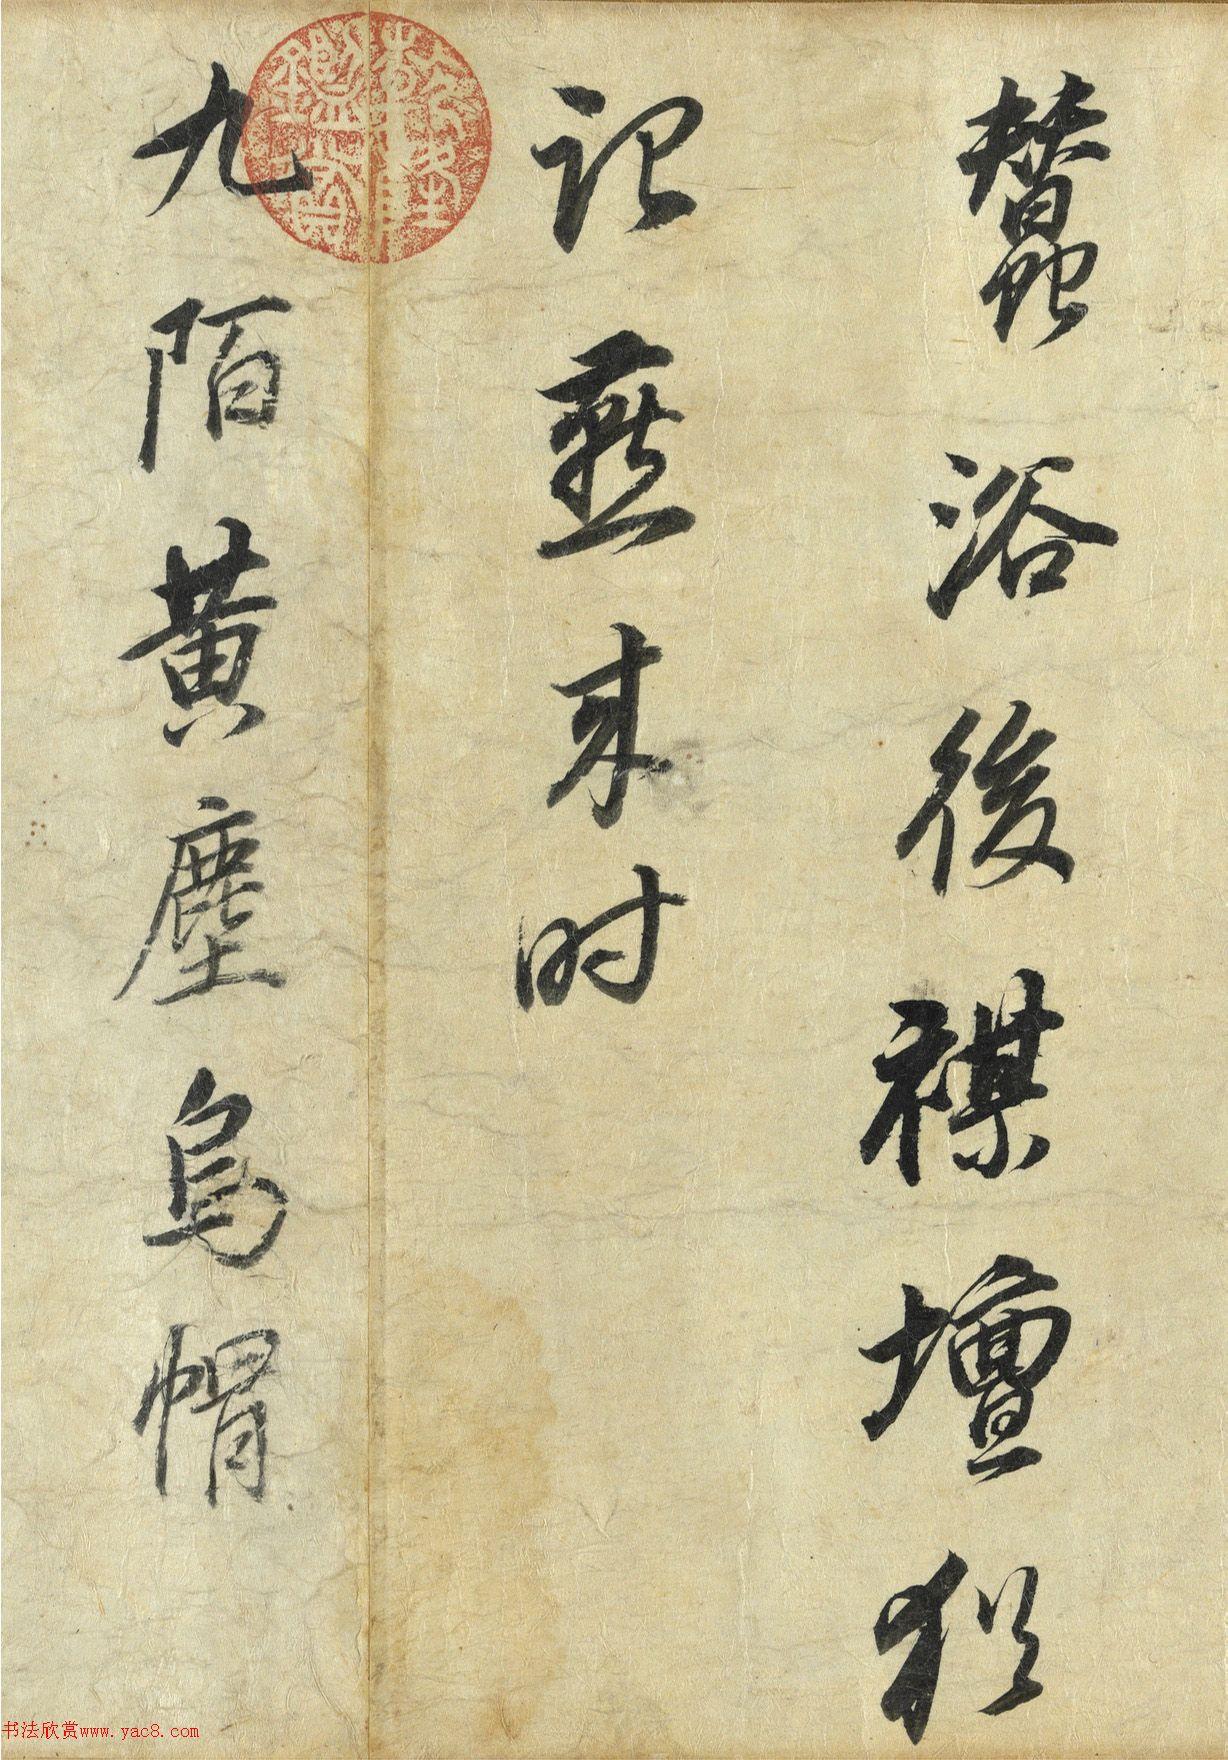 蠶浴後禖壇猶
記燕來時
九陌黃塵烏帽
书法欣赏www.yac8.com